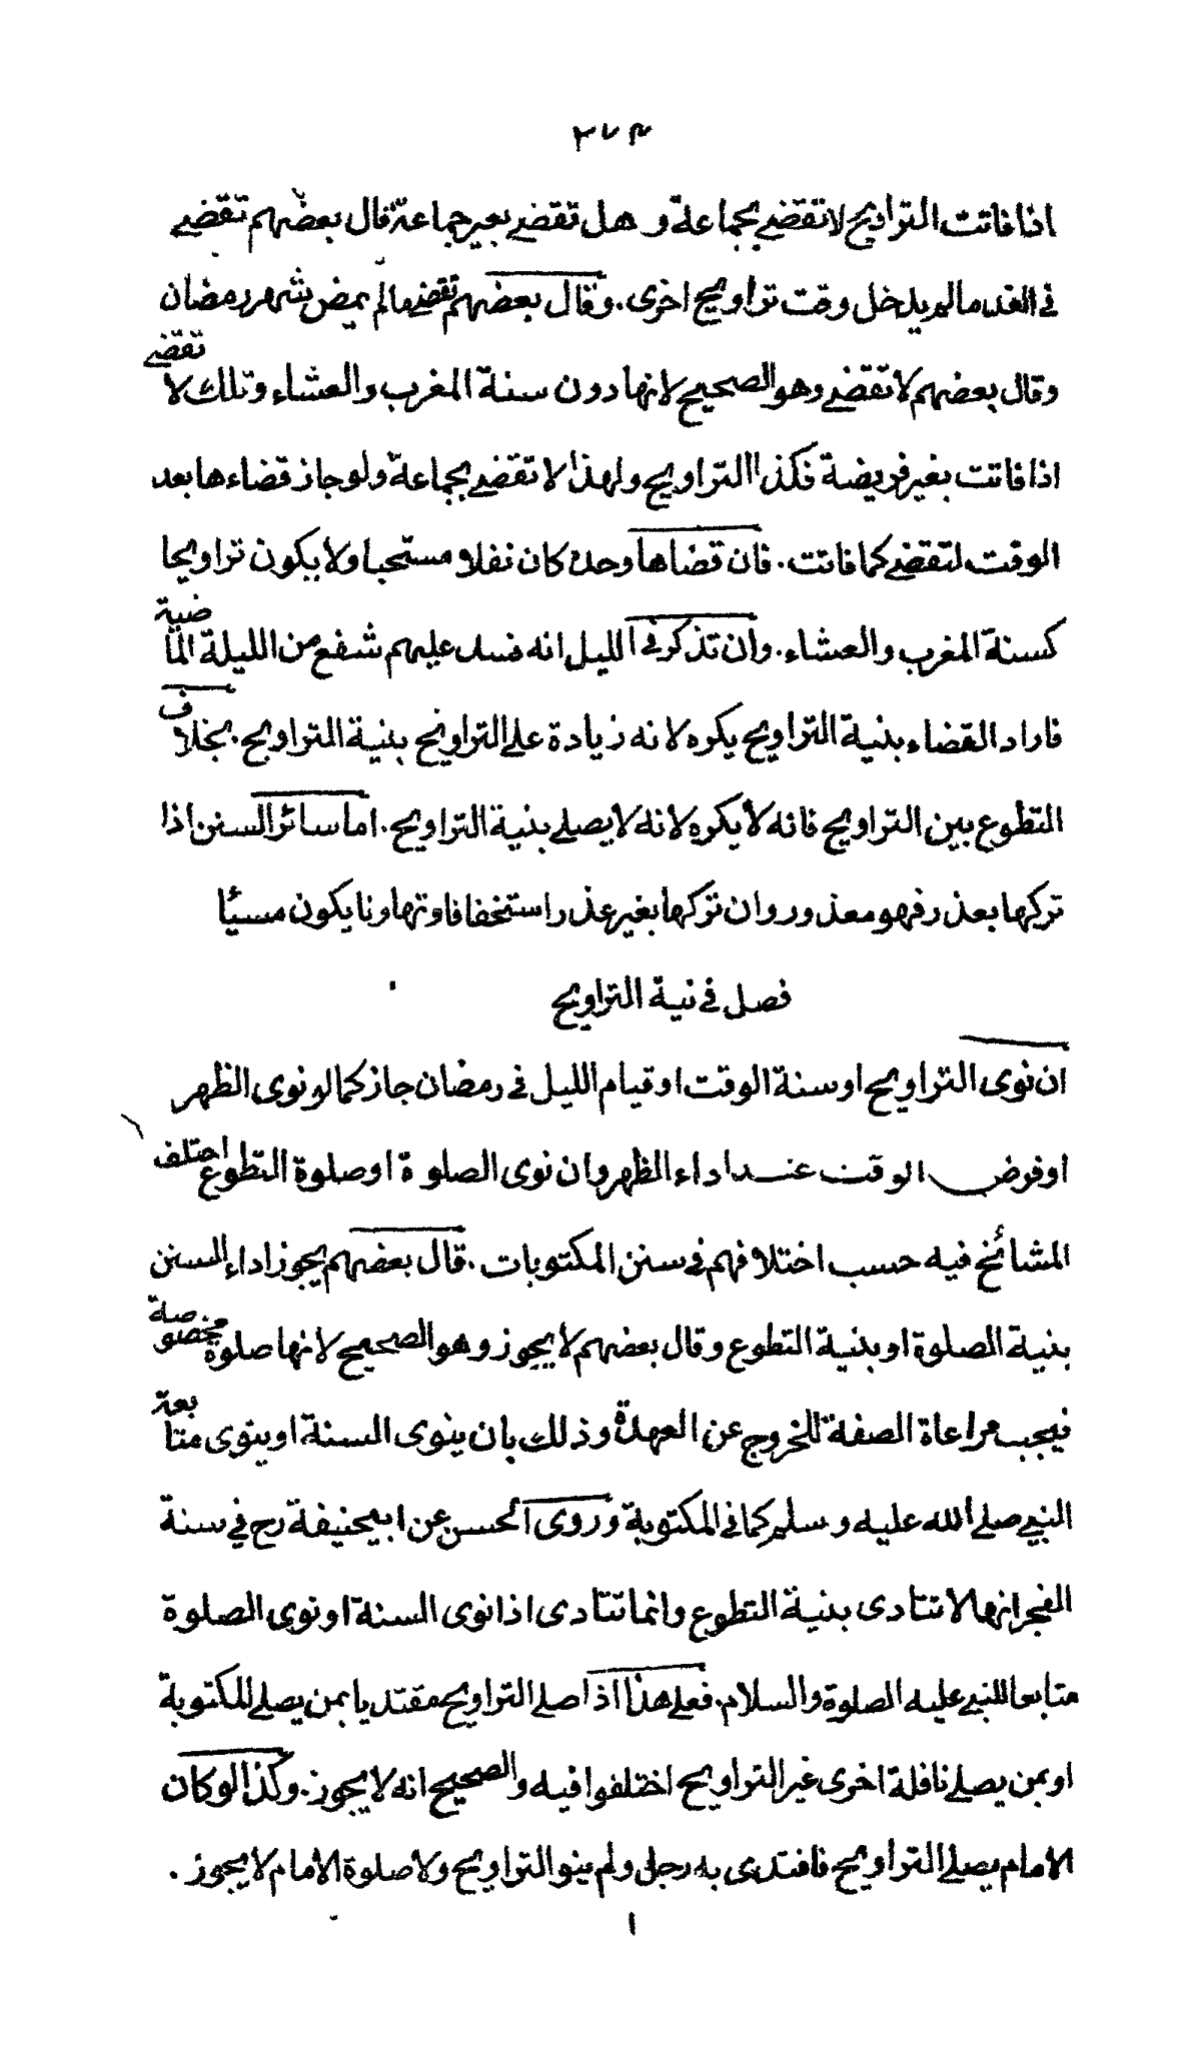 ٢٧٤
اذا فاتت التراويح لا تقضے بجماعة و هل تقضے بغير جماعة قال بعضهم تقضے
فى الغد ما لم يدخل وقت تراويح اخرى. وقال بعضهم تقضے ما لم يمض شهر رمضان
وقال بعضهم لا تقضے وهو الصحيح لانها دون سنة المغرب والعشاء وتلك لا تقضے
اذا فاتت بغير فريضة فكذا التراويح ولهذا لا تقضے بجماعة ولو جاز قضاءها بعد
الوقت لتقضے كما فاتت. فان قضاها وحده كان نفلا مستحبا ولا يكون تراويحا
كسنة المغرب والعشاء. وان تذكر فى الليل انه فسد عليهم شفع من الليلة الماضية
فاراد القضاء بنية التراويح يكره لانه زيادة على التراويح بنية التراويح. بخلاف
التطوع بين التراويح فانه لا يكره لانه لا يصلے بنية التراويح. اما سائر السنن اذا
تركها بعذر فهو معذور وان تركها بغير عذر استخفافا وتهاونا يكون مسيئا
فصل فى نية التراويح
ان نوى التراويح او سنة الوقت او قيام الليل فى رمضان جاز كما لو نوى الظهر
او فرض الوقت عند اداء الظهر وان نوى الصلوة او صلوة التطوع اختلف
المشائخ فيه حسب اختلافهم فى سنن المكتوبات. قال بعضهم يجوز اداء السنن
بنية الصلوة او بنية التطوع وقال بعضهم لا يجوز وهو الصحيح لانها صلوة مخصوصة
فيجب مراعاة الصفة للخروج عن العهدة وذلك بان ينوى السنة او ينوى متابعة
النبي صلے الله عليه وسلم كما فى المكتوبة وروى الحسن عن ابيحنيفة رح فى سنة
الفجر انها لا تتادى بنية التطوع وانما تتادى اذا نوى السنة او نوى الصلوة
متابعا للنبے عليه الصلوة والسلام. فعلے هذا اذا صلے التراويح مقتديا بمن يصلے المكتوبة
او بمن يصلے نافلة اخرى غير التراويح اختلفوا فيه والصحيح انه لا يجوز. وكذا لو كان
الامام يصلے التراويح فاقتدى به رجل ولم ينو التراويح ولا صلوة الامام لا يجوز.